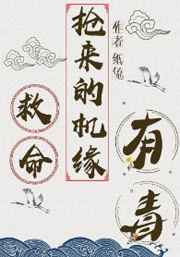 作者 纸兔
抢来的机缘
有毒
救命